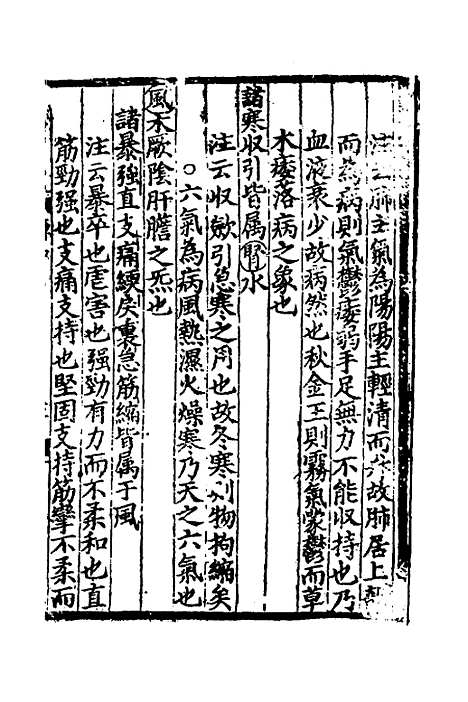 注云肺主氣為陽陽主輕清而升故肺居上部
而為病則氣鬱痿弱手足無力不能収持也乃
血液衰少故病然也秋金王則霧氣蒙鬱而草
木痿落病之象也
諸寒収引皆属腎水
注云収歛引急寒之用也故冬寒則物拘縮矣
○六氣為病風熱濕火燥寒乃天之六氣也
風木厥陰肝膽之炁也
諸暴强直支痛緛戾裏急筋縮皆属于風
注云暴卒也虐害也强勁有力而不柔和也直
筋勁强也支痛支持也堅固支持筋攣不柔而